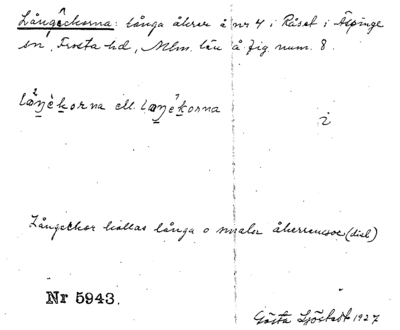 Långêckorna: långa åkrar å nr 4 i Råset i Äspinge
sn, Frosta hd, Mlm. län å fig. num. 8.
i
Långeckor kallas långa o smala åkerremsor (dial)
Nr 5943.
Gösta Sjöstedt 1927